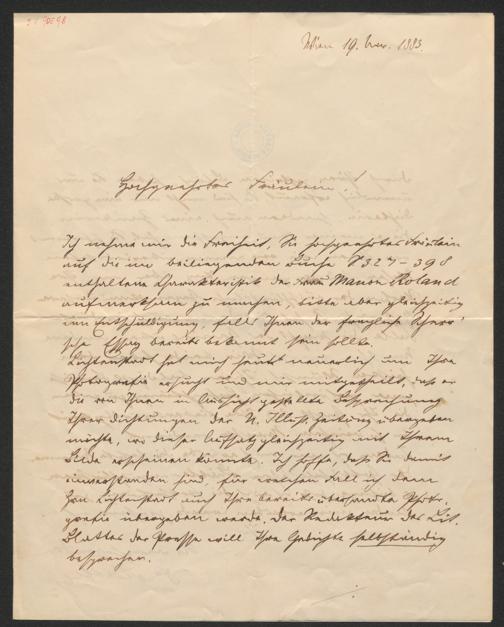 Wien 19. Nov. 1883.
Hochgeehrtes Fräulein!
Ich nehme mir die Freiheit, Sie hochgeehrtes Fräulein
auf die im beiliegenden Buche S 327-398
enthaltene Charakteristik der Frau Manon Roland
aufmerksam zu machen, bitte aber gleichzeitig
um Entschuldigung, falls Ihnen der fragliche Scherr'
sche Essay bereits bekannt sein sollte.
Lichtenstadt hat mich heute neuerlich um Ihre
Photografie ersucht und mir mitgetheilt, dass er
die von Ihnen in Aussicht gestellte Besprechung
Ihrer Dichtungen der N. Illust. Zeitung übergeben
möchte, wo dieser Aufsatz gleichzeitig mit Ihrem
Bilde erscheinen könnte. Ich hoffe, dass Sie damit
einverstanden sind, für welchen Fall ich dem
Hrn Lichtenstadt auch Ihre bereits übersandte Photo-
grafie übergeben werde. Der Redakteur des Lit.
Blattes der Presse will Ihre Gedichte selbständig
besprechen.